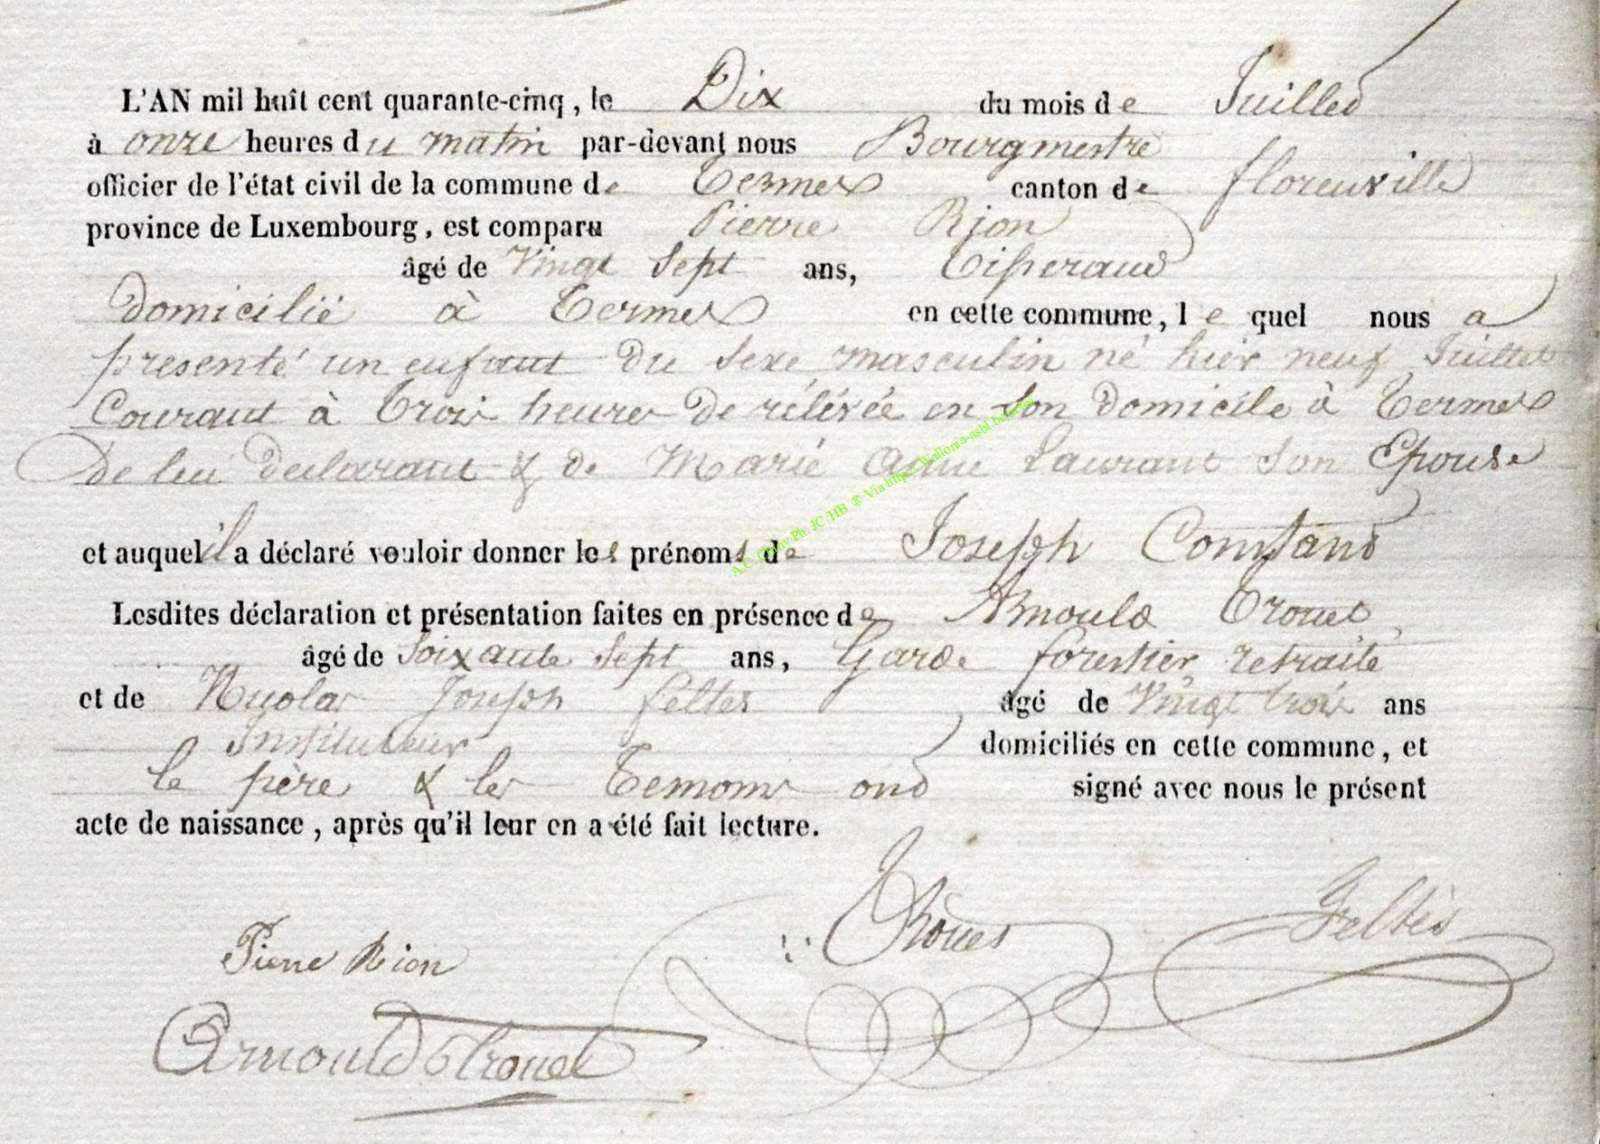 L'AN mil huit cent quarante-cinq, le Dix du mois de Juillet
à onze heures du matin par-devant nous Bourgmestre
officier de l'état civil de la commune de Termes canton de florenville
province de Luxembourg, est comparu Pierre Rion
âgé de Vingt Sept ans, Tisserand
domicilié à Termes en cette commune, le quel nous a
présenté un enfant du sexe masculin né hier neuf Juillet
Courant à Trois heures de rélévée en son domicile à Termes
de lui declarant & de Marie Anne Laurant son Epouse
et auquel il a déclaré vouloir donner les prénoms de Joseph Constant
Lesdites déclaration et présentation faites en présence de Arnould Trouet
âgé de Soixante Sept ans, Garde forestier retraité
et de Nycolas Joseph feltes âgé de Vingt trois ans
Instituteur domiciliés en cette commune, et
le père & les Temoins ont signé avec nous le présent
acte de naissance, après qu'il leur en a été fait lecture.
Pierre Rion
Feltès
Arnould Trouet